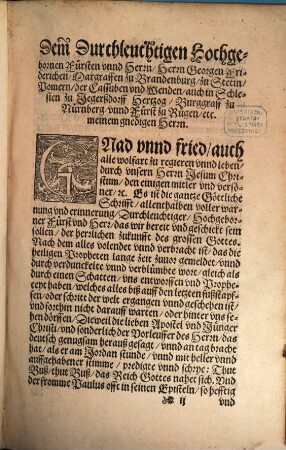 Dem Durchleuchtigen Hochge-
bornen Fürsten vnnd Herrn/ Herrn Georgen Fri-
derichen/ Marggraffen zu Brandenburg/ zu Stetin/
Pomern/ der Cassuben vnd Wenden/ auch in Schle-
sien zu Jegerßdorff Hertzog/ Burggraff zu
Nürnberg/ vnnd Fürst zu Rügen/ etc.
meinem gnedigen Herrn.
GNad vnnd fried/ auch
alle wolfart zu regieren vnnd leben/
durch vnsern Herrn Jesum Chri-
stum/ den einigen mitler vnd versö-
ner/ ꝛc. Es ist die gantze Göttliche
Schrifft/ allenthalben voller war-
nung vnd erinnerung/ Durchleuchtiger/ Hochgebor-
ner Fürst vnd Herr/ das wir bereit vnd geschickt sein
sollen/ der herrlichen zukunft des grossen Gottes.
Nach dem alles volendet vnnd verbracht ist/ das die
heiligen Propheten lange zeit zuuor gemeldet/ vnnd
durch verdunckelte vnnd verblümbte wort/ gleich als
durch einen Schatten/ vns entworffen vnd Prophe-
ceyt haben/ welches alles biß auff den letzten fußstapf-
fen/ oder schritt der welt ergangen vnnd geschehen ist/
vnd forthin nicht darauff warten/ oder hinter vns se-
hen dörffen/ Dieweil die lieben Apostel vnd Jünger
Christi/ vnd sonderlich der Vorleuffer des Herrn/ das
deutsch genugsam herauß gesagt/ vnnd an tag bracht
hat/ als er am Jordan stunde/ vnnd mit heller vnnd
auffgehabener stimme/ predigte vnnd schrye: Thut
Buß/ thut Buß/ das Reich Gottes nahet sich. Vnd
der fromme Paulus offt in seinen Episteln/ so hefftig
ij vnd